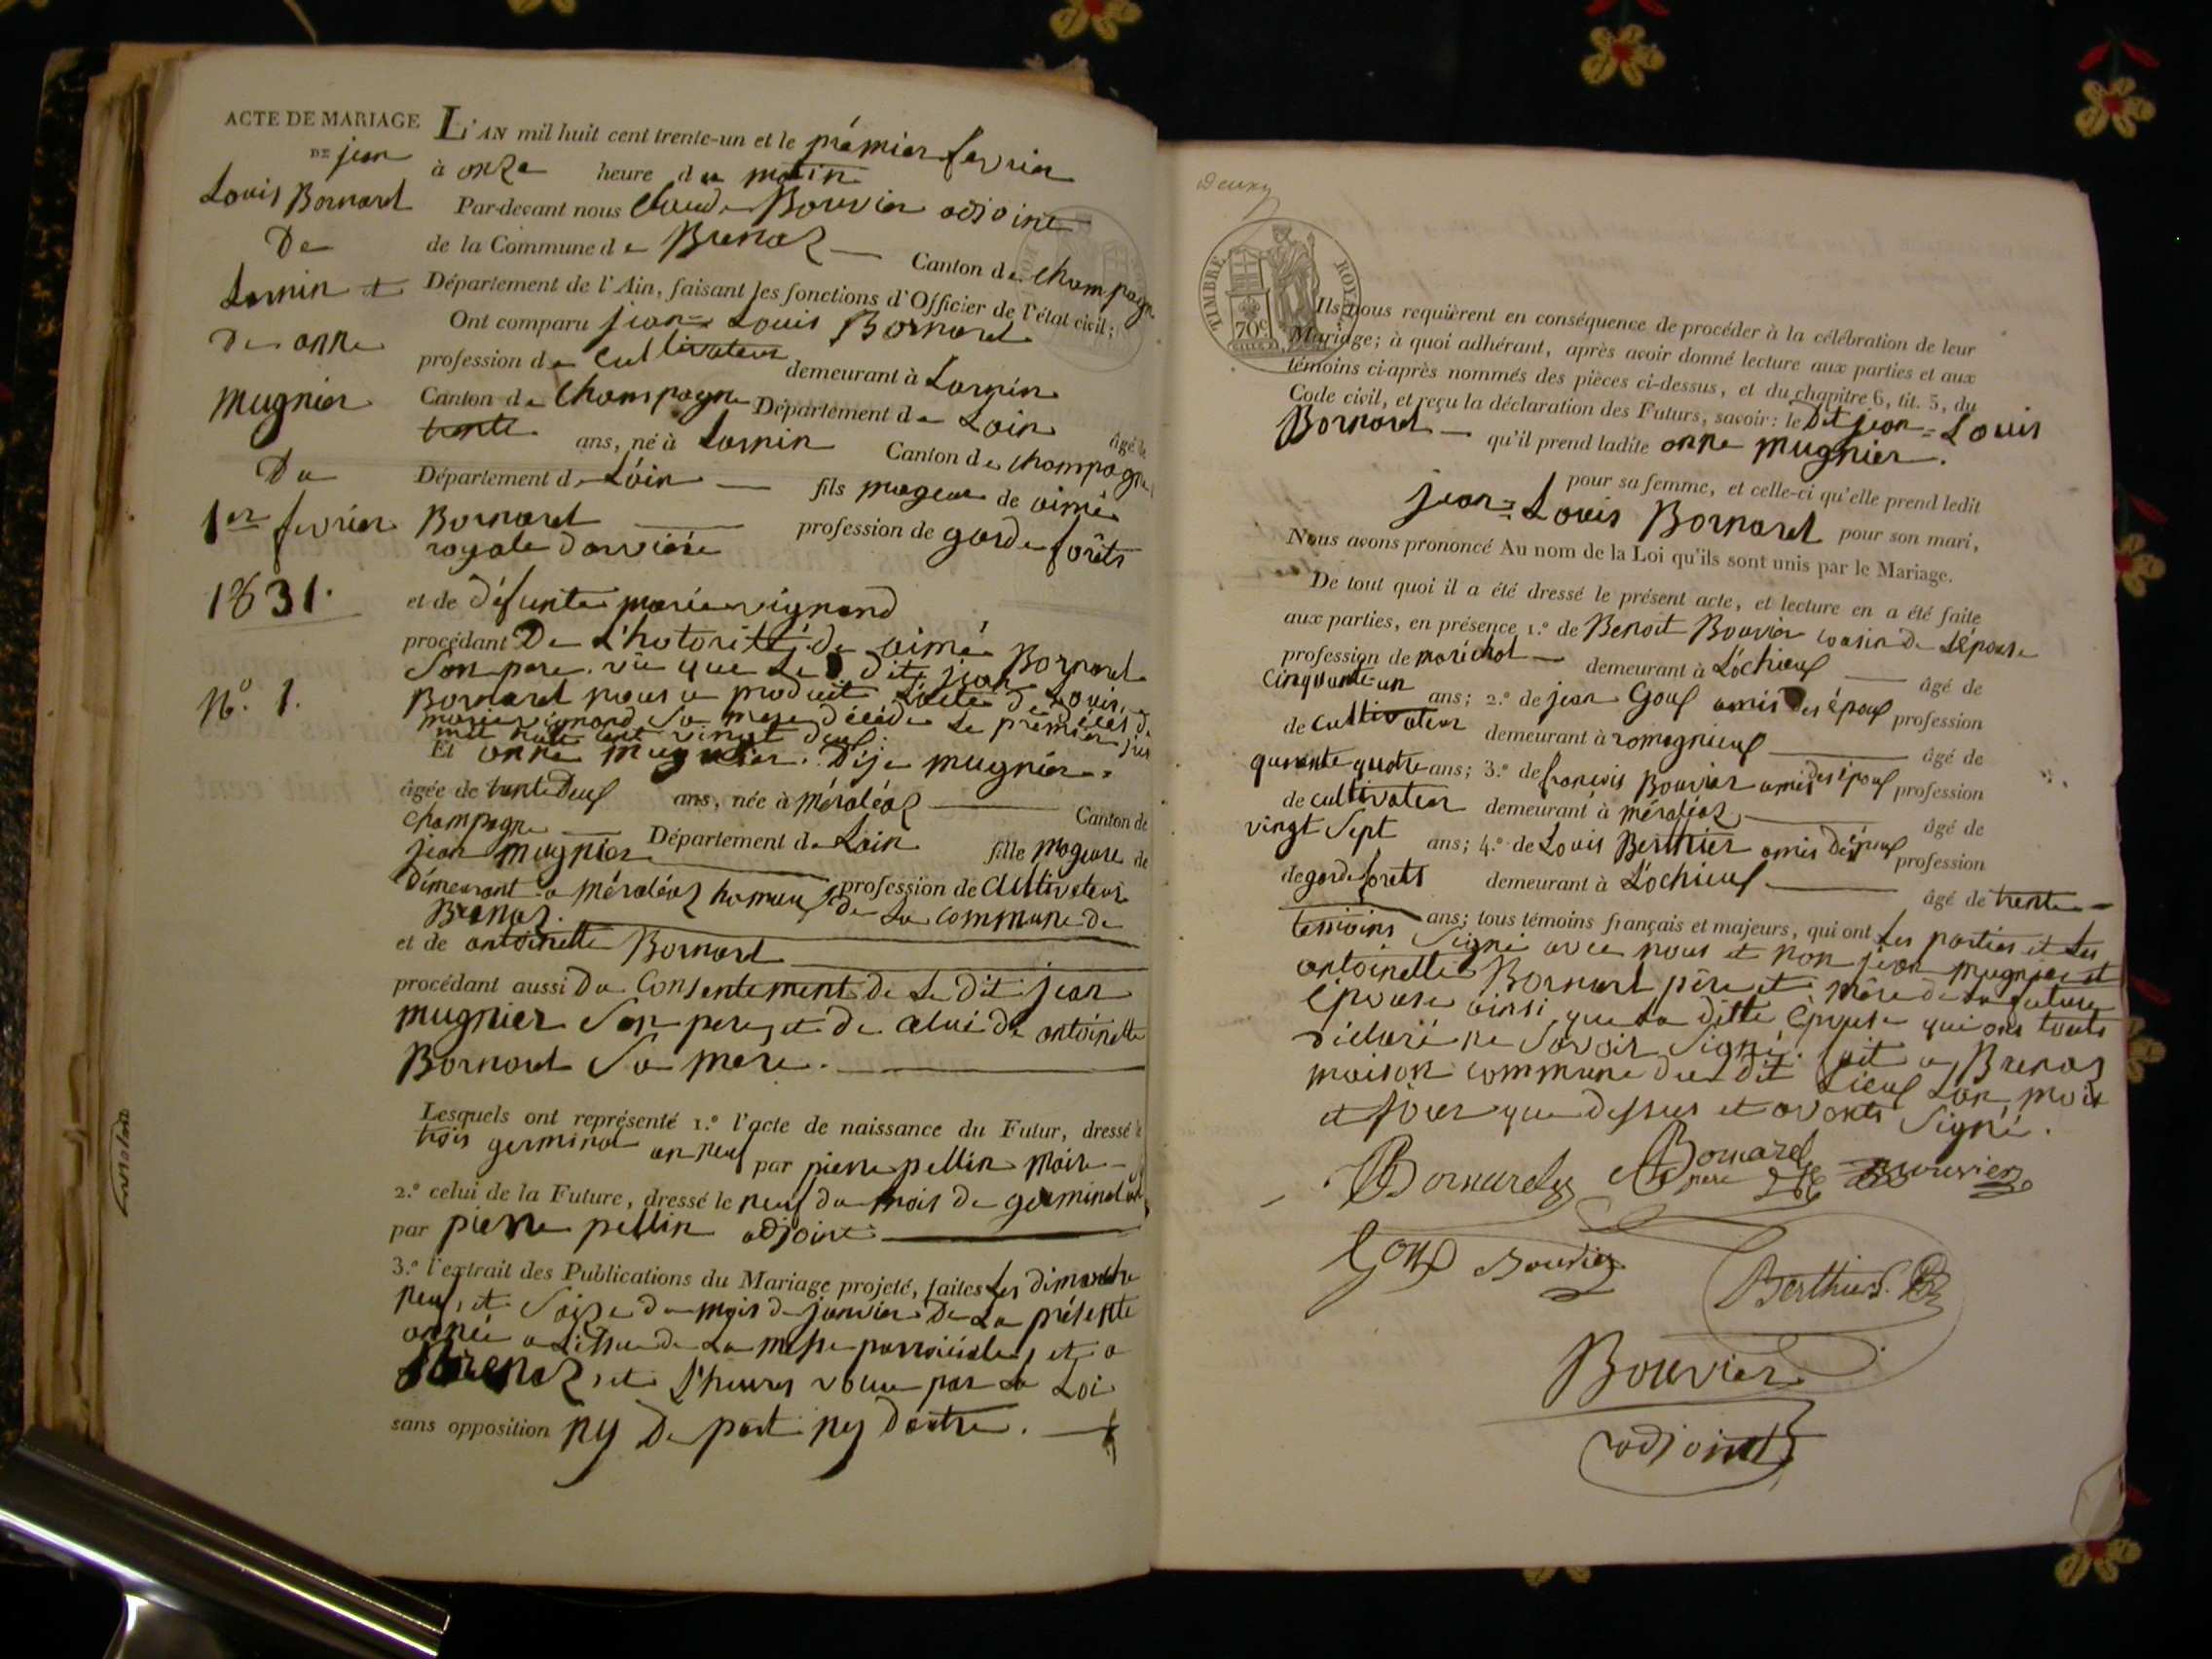 ACTE DE MARIAGE
DE jean
Louis Bornard
De
Lornin et
De anne
mugnier
Du
1er fevrier
1831.
No. 1.
L'AN mil huit cent trente-un et le prémier fevrier
à onze heure du matin
Par-devant nous Claude Bouvier adjoint
de la Commune de Brenaz Canton de Champagne
Département de l'Ain, faisant les fonctions d'Officier de l'état civil;
Ont comparu jean=Louis Bornard
profession de Cultivateur demeurant à Lornin
Canton de Champagne Département de Lain âgé de
trente ans, né à Lornin Canton de Champagne
Département de Lain fils mageur de aimé
Bornard profession de garde forêts
royale
et de défunte marie vignand
procédant De L'hotorité de aimé Bornard
Son pere. vû que Le dit jean Louis
Bornard nous a produit L'acte de déces de
marie vignand Sa mere décédée Le prémier
mil huit cent vingt deux.
Et anne mugnier. Dije mugnier.
âgée de trente Deux ans, née à méraléaz Canton de
Champagne Département de Lain fille mageure de
jean mugnier profession de Cultivateur
Démeurant a méraléaz hameux de La Commune de
Brenaz.
et de antoinette Bornard
procédant aussi Du Consentement de Le Dit jean
mugnier Son pere, et de celui de antoinette
Bornard Sa mere.
Lesquels ont représenté 1.º l'acte de naissance du Futur, dressé le
trois germinal an neuf par pierre pellin maire
2.º celui de la Future, dressé le neuf du mois de germinal
par pierre pellin adjoint
3.º l'extrait des Publications du Mariage projeté, faites Les dimanche
neuf, et Saize du mois de janvier De La présente
année a Lissue de La messe parroiciale, et a
Brenaz, et l'heures voulue par La Loi
sans opposition ny De part ny dautre.
TIMBRE ROYAL
70c
Ils nous requièrent en conséquence de procéder à la célébration de leur
Mariage; à quoi adhérant, après avoir donné lecture aux parties et aux
témoins ci-après nommés des pièces ci-dessus, et du chapitre 6, tit. 5, du
Code civil, et reçu la déclaration des Futurs, savoir: le Dit jean=Louis
Bornard qu'il prend ladite anne mugnier.
pour sa femme, et celle-ci qu'elle prend ledit
jean=Louis Bornard pour son mari,
Nous avons prononcé Au nom de la Loi qu'ils sont unis par le Mariage.
De tout quoi il a été dressé le présent acte, et lecture en a été faite
aux parties, en présence 1.º de Benoit Bouvier cousin De Lépouse
profession de maréchal demeurant à Lochieux âgé de
Cinquante un ans; 2.º de jean Goux amis Des époux profession
de cultivateur demeurant à romagnieux âgé de
quarente quatre ans; 3.º de francois Bouvier amis des époux profession
de cultivateur demeurant à méraléaz âgé de
vingt Sept ans; 4.º de Louis Berthier amis Des époux profession
de garde forets demeurant à Lochieux âgé de trente
ans; tous témoins français et majeurs, qui ont Les parties et Les
témoins Signé avec nous et non jean mugnier et
antoinette Bornard père et mère de La future
épouse ainsi que La Ditte épouse qui ont touts
déclaré ne Savoir Signé. fait a Brenaz
maison commune du dit Lieux Lan mois
et jour que dessus et avonts Signé.
Bornard Bornard pere Bouvier
Goux Bouvier Berthier
Bouvier
adjoint